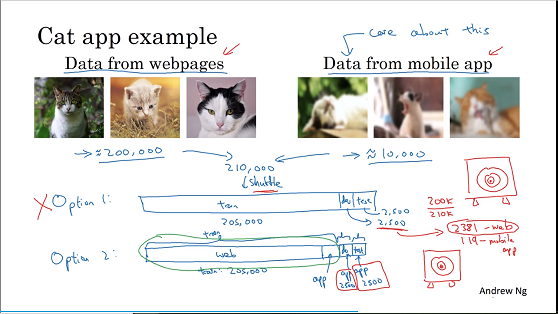 Cat app example
care about this
Data from webpages
Data from mobile app
→ ≈200,000
210,000
≈10,000
shuffle
Option 1:
train
dev
test
2,500
2,500
205,000
200k
210k
2381 - web
119 - mobile app
Option 2:
train
web
train: 205,000
app
app 2500
app 2500
Andrew Ng